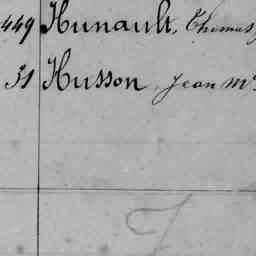 449 Hunault, Thomas
51 Husson, Jean M
J